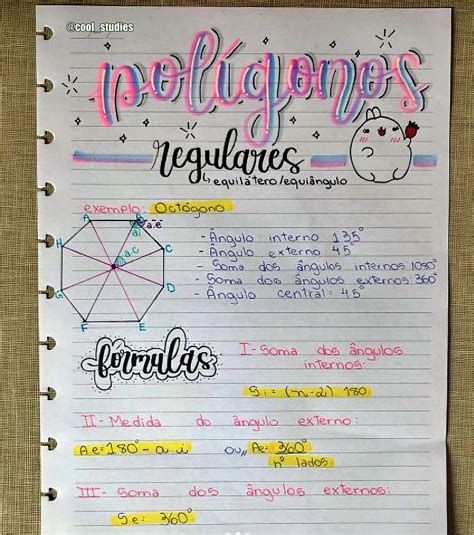 @cool_studies
polígonos
regulares
↳ equilátero/equiângulo
exemplo: Octógono
A
B
a.e
H
ai
C
a.c
G
D
F
E
- Ângulo interno 135°
- Ângulo externo 45°
- Soma dos ângulos internos 1080°
- Soma dos ângulos externos: 360°
- Ângulo central: 45°
fórmulas
I- Soma dos ângulos
internos:
Si: (n-2) 180
II- Medida do ângulo externo:
A.e: 180° - a.i ou,, Ae: 360°
nº lados
III- Soma dos ângulos externos:
S.e: 360°